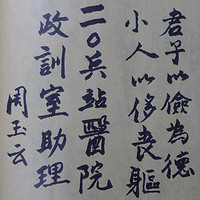 君子以儉為德
小人以侈喪軀
二〇兵站醫院
政訓室助理
周玉云